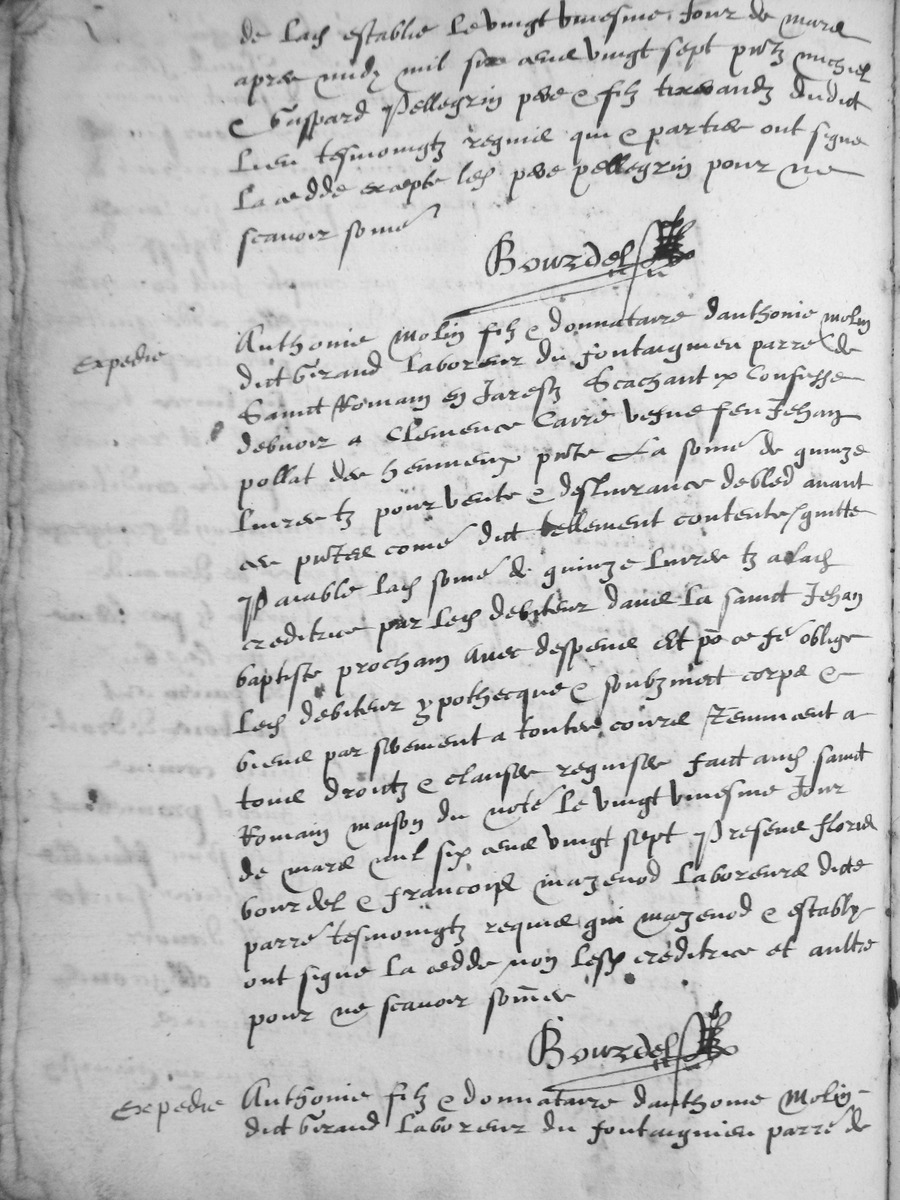 de lad establie le vingt uniesme Jour de mars
apres midy mil six cens vingt sept pntz michiel
& Gaspard Pellegrin pere & filz tisserandz dudict
lieu tesmoingtz requis qui & parties ont signe
la cedde excepte led pere pellegrin pour ne
scavoir somé
Bourdel
Expedie
Anthonie Molin filz & donnataire danthonie molin
dict Girand laboreur du fontaignieu parre de
Sainct Romain en Jarestz Scachant confesse
debvoir a Clemence vefve feu Jehan
pollat des pnte La somé de quinze
livres tz pour vente & deslivrance de bled avant
ces pntes comé dict tellement contente quitte
Paiable lad somé de quinze livres tz a lad
creditrice par led debiteur dans la sainct Jehan
baptiste prochain avec despens Et po ce fe oblige
led debiteur ypothecque & soubzmect corps &
biens par serement a toutes cours Renuncent a
tous droictz & clauses requises faict aud sainct
Romain maison du noté le vingt uniesme Jour
de mars mil six cens vingt sept Presens floris
bourdel & francoys mazenod laboreurs dicte
parré tesmoingtz requis qui mazenod & estably
ont signe la cedde non lesd creditrice et aultre
pour ne scavoir somes
Bourdel
Expedie
Anthonie filz & donnataire danthonie Molin
dict Girand laboreur du fontaignieu parré de